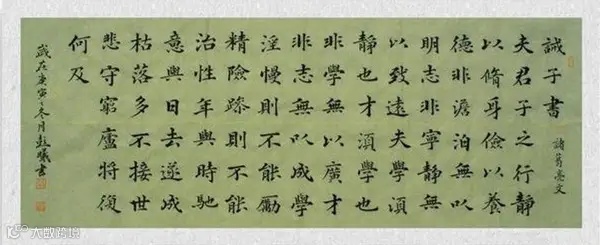 誡子書 諸葛亮文
夫君子之行靜
以脩身儉以養
德非澹泊無以
明志非寧靜無
以致遠夫學須
靜也才須學也
非學無以廣才
非志無以成學
淫慢則不能勵
精險躁則不能
治性年與時馳
意與日去遂成
枯落多不接世
悲守窮廬將復
何及
歲在庚寅冬月書
大数跨境